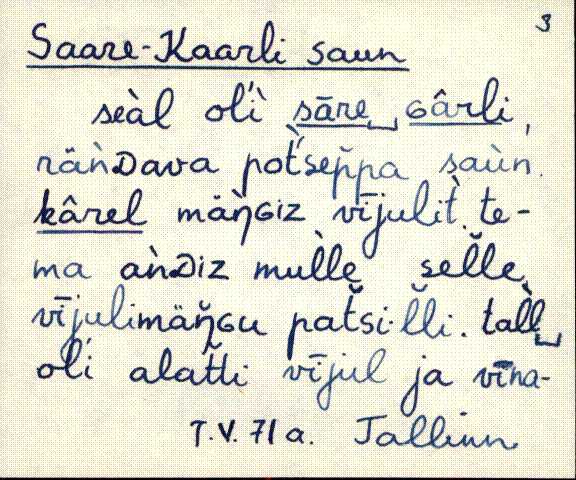 3
Saare-Kaarli saun
seàl oĺì sāre ɢârli,
räǹᴅava pot̀'sep̆pa saùn.
kârel mäŋ̀ɢiz vījulit̀. te-
ma aǹᴅiz mul̀le sel̆le
vījulimäŋ̆ɢu pat̆si·l̆li. tal̀l
oĺi alat̆ti vījul ja vīna-
T.V. 71 a. Tallinn